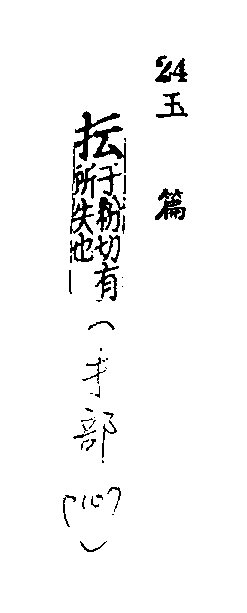 24
玉篇
抎于粉切有所失也（手部107）